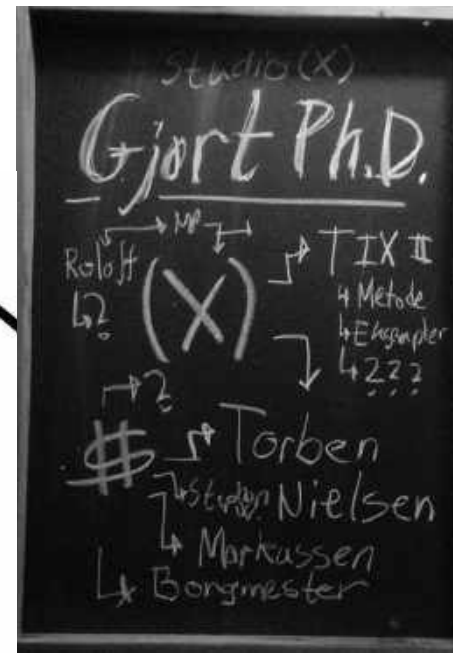 Studio (X)
Gjort Ph.D.
MP
Roloff
?
(X)
TIX II
Metode
Eksempler
???
?
$
Torben
Nielsen
Markussen
Bongmester